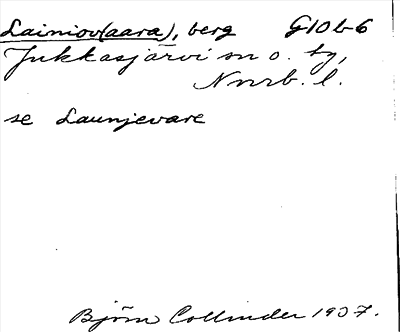 Lainiov(aara), berg G10b-6
Jukkasjärvi sn o. tg,
Nnrb. l.
se Launjevare
Björn Collinder 1907.